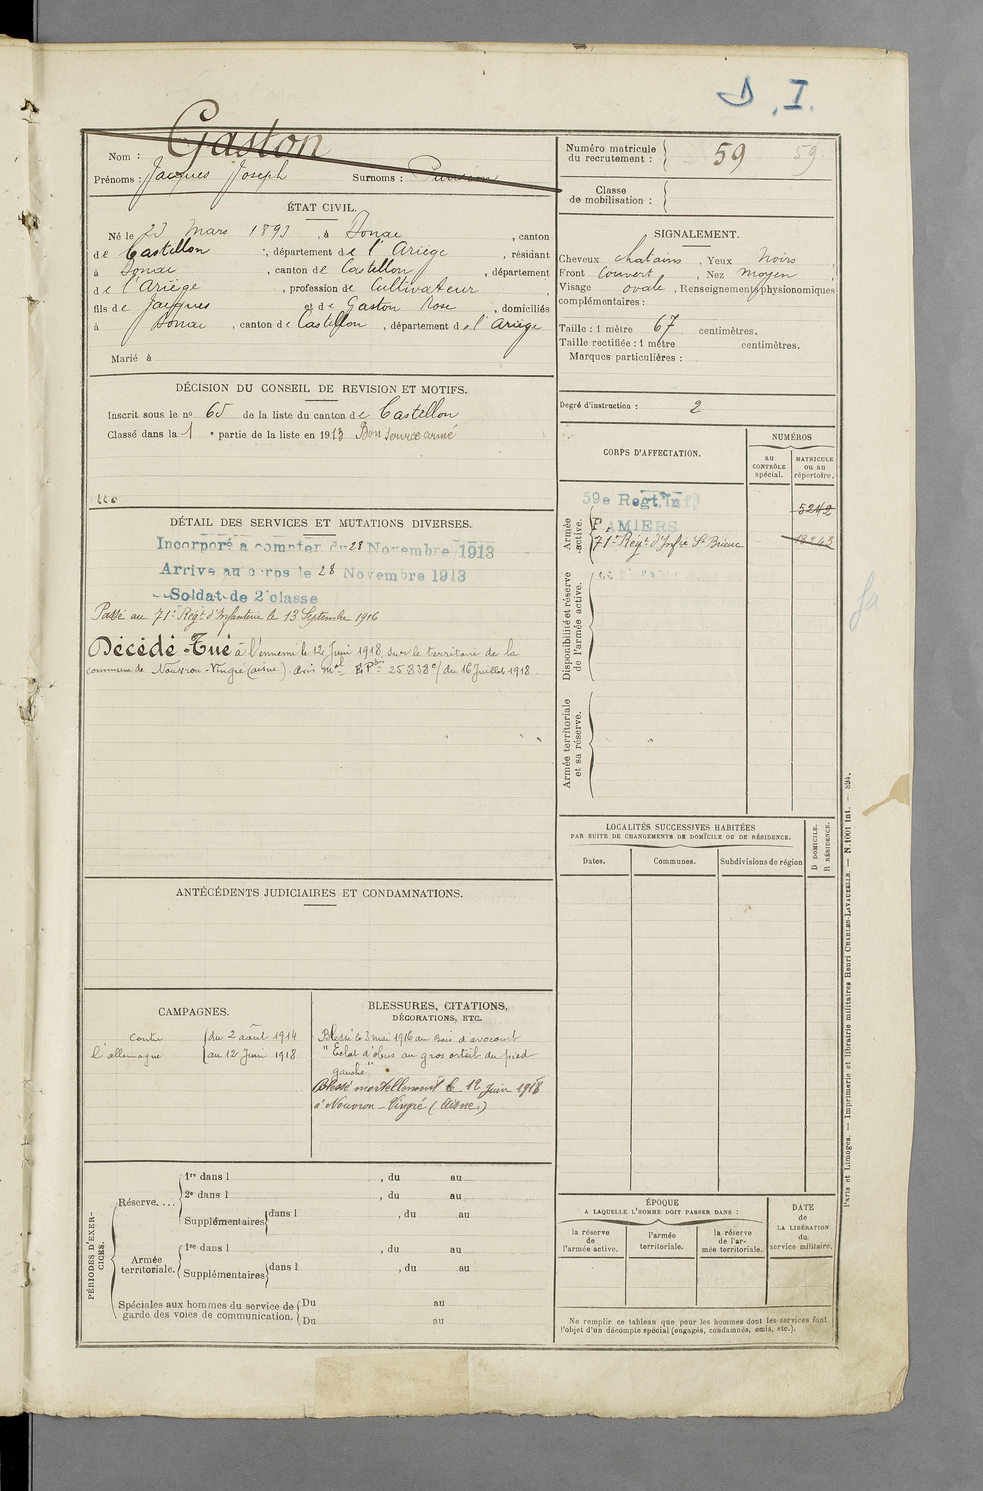 D. I.
Nom : Gaston
Prénoms : Jacques Joseph Surnoms :
ÉTAT CIVIL.
Né le 23 Mars 1893, à Bonac, canton
de Castillon, département de l'Ariège, résidant
à Bonac, canton de Castillon, département
de l'Ariège, profession de Cultivateur
fils de Jacques et de Gaston Rose, domiciliés
à Bonac, canton de Castillon, département de l'Ariège
Marié à
DÉCISION DU CONSEIL DE REVISION ET MOTIFS.
Inscrit sous le no 65 de la liste du canton de Castillon
Classé dans la 1e partie de la liste en 1913 Bon service armé
DÉTAIL DES SERVICES ET MUTATIONS DIVERSES.
Incorporé a compter du 28 Novembre 1913
Arrivé au corps le 28 Novembre 1913
Soldat de 2e classe
Passé au 71e Régt d'Infanterie le 13 Septembre 1916
Décédé - Tué à l'ennemi le 12 Juin 1918, sur le territoire de la
commune de Nouvron-Vingré (aisne). Avis mel du 16 Juillet 1918.
ANTÉCÉDENTS JUDICIAIRES ET CONDAMNATIONS.
CAMPAGNES.
Contre du 2 août 1914
l'allemagne au 12 Juin 1918
BLESSURES, CITATIONS,
DÉCORATIONS, ETC.
Blessé le 3 mai 1916 au Bois d'avocourt
"Eclat d'obus au gros orteil du pied
gauche"
Blessé mortellement le 12 Juin 1918
à Nouvron-Vingré (Aisne.)
PÉRIODES D'EXERCICES.
Réserve....
1re dans l , du au
2e dans l , du au
Supplémentaires dans l , du au
Armée territoriale.
1re dans l , du au
Supplémentaires dans l , du au
Spéciales aux hommes du service de Du au
garde des voies de communication. Du au
Numéro matricule
du recrutement : 59 59
Classe
de mobilisation :
SIGNALEMENT.
Cheveux chatains, Yeux Noirs
Front Couvert, Nez moyen
Visage ovale, Renseignements physionomiques
complémentaires :
Taille : 1 mètre 67 centimètres.
Taille rectifiée : 1 mètre centimètres.
Marques particulières :
Degré d'instruction : 2
CORPS D'AFFECTATION.
NUMÉROS
au
CONTRÔLE
spécial.
MATRICULE
ou au
répertoire.
Armée
active.
59e Regt. Inf. 5242
PAMIERS
71e Régt d'Infie St Brieuc
Disponibilité et réserve
de l'armée active.
Armée territoriale
et sa réserve.
LOCALITÉS SUCCESSIVES HABITÉES
PAR SUITE DE CHANGEMENTS DE DOMICILE OU DE RÉSIDENCE.
D DOMICILE.
R RÉSIDENCE.
Dates. Communes. Subdivisions de région
ÉPOQUE
A LAQUELLE L'HOMME DOIT PASSER DANS :
la réserve
de
l'armée active.
l'armée
territoriale.
la réserve
de l'ar-
mée territoriale.
DATE
de
LA LIBÉRATION
du
service militaire.
Ne remplir ce tableau que pour les hommes dont les services font
l'objet d'un décompte spécial (engagés, condamnés, omis, etc.).
Paris et Limoges. — Imprimerie et librairie militaires Henri CHARLES-LAVAUZELLE. — N. 1001 Int. — 894.